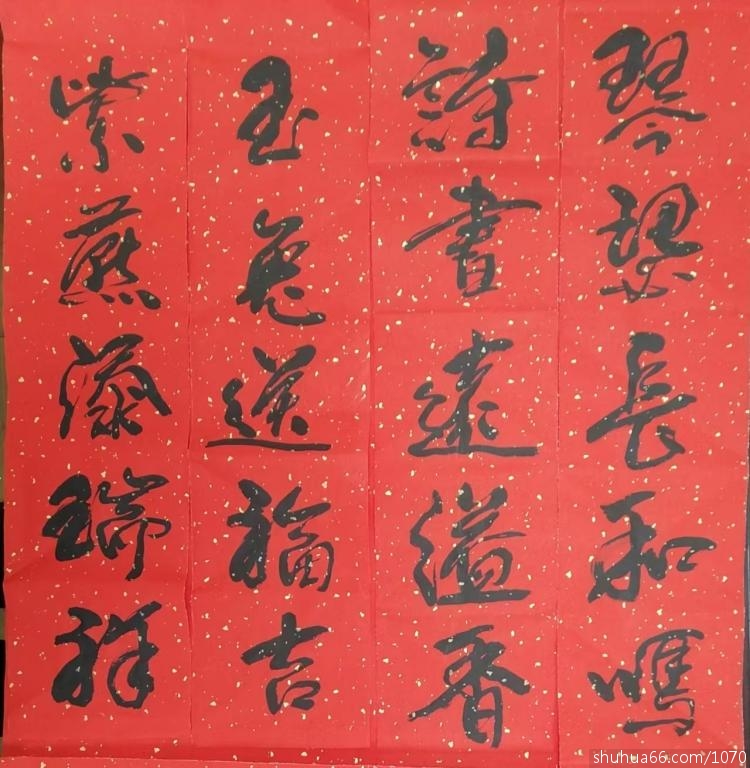 琴瑟長和鳴
詩書遠溢香
玉兔送福吉
紫燕添瑞祥
shuhua66.com/1070